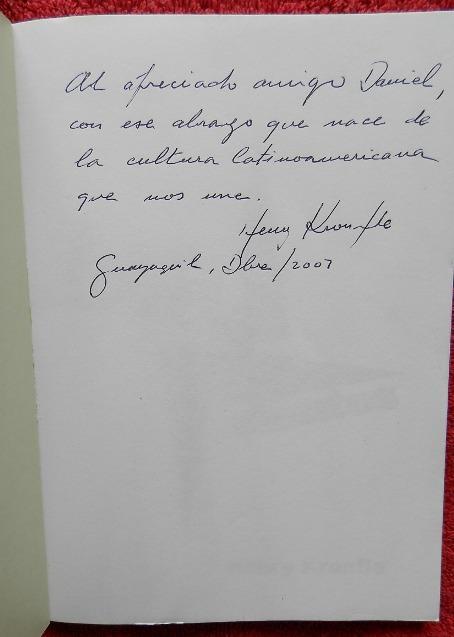 Al apreciado amigo Daniel,
con ese abrazo que nace de
la cultura latinoamericana
que nos une.
Henry Kronfle
Guayaquil, Dbre/2007
Henry Kronfle